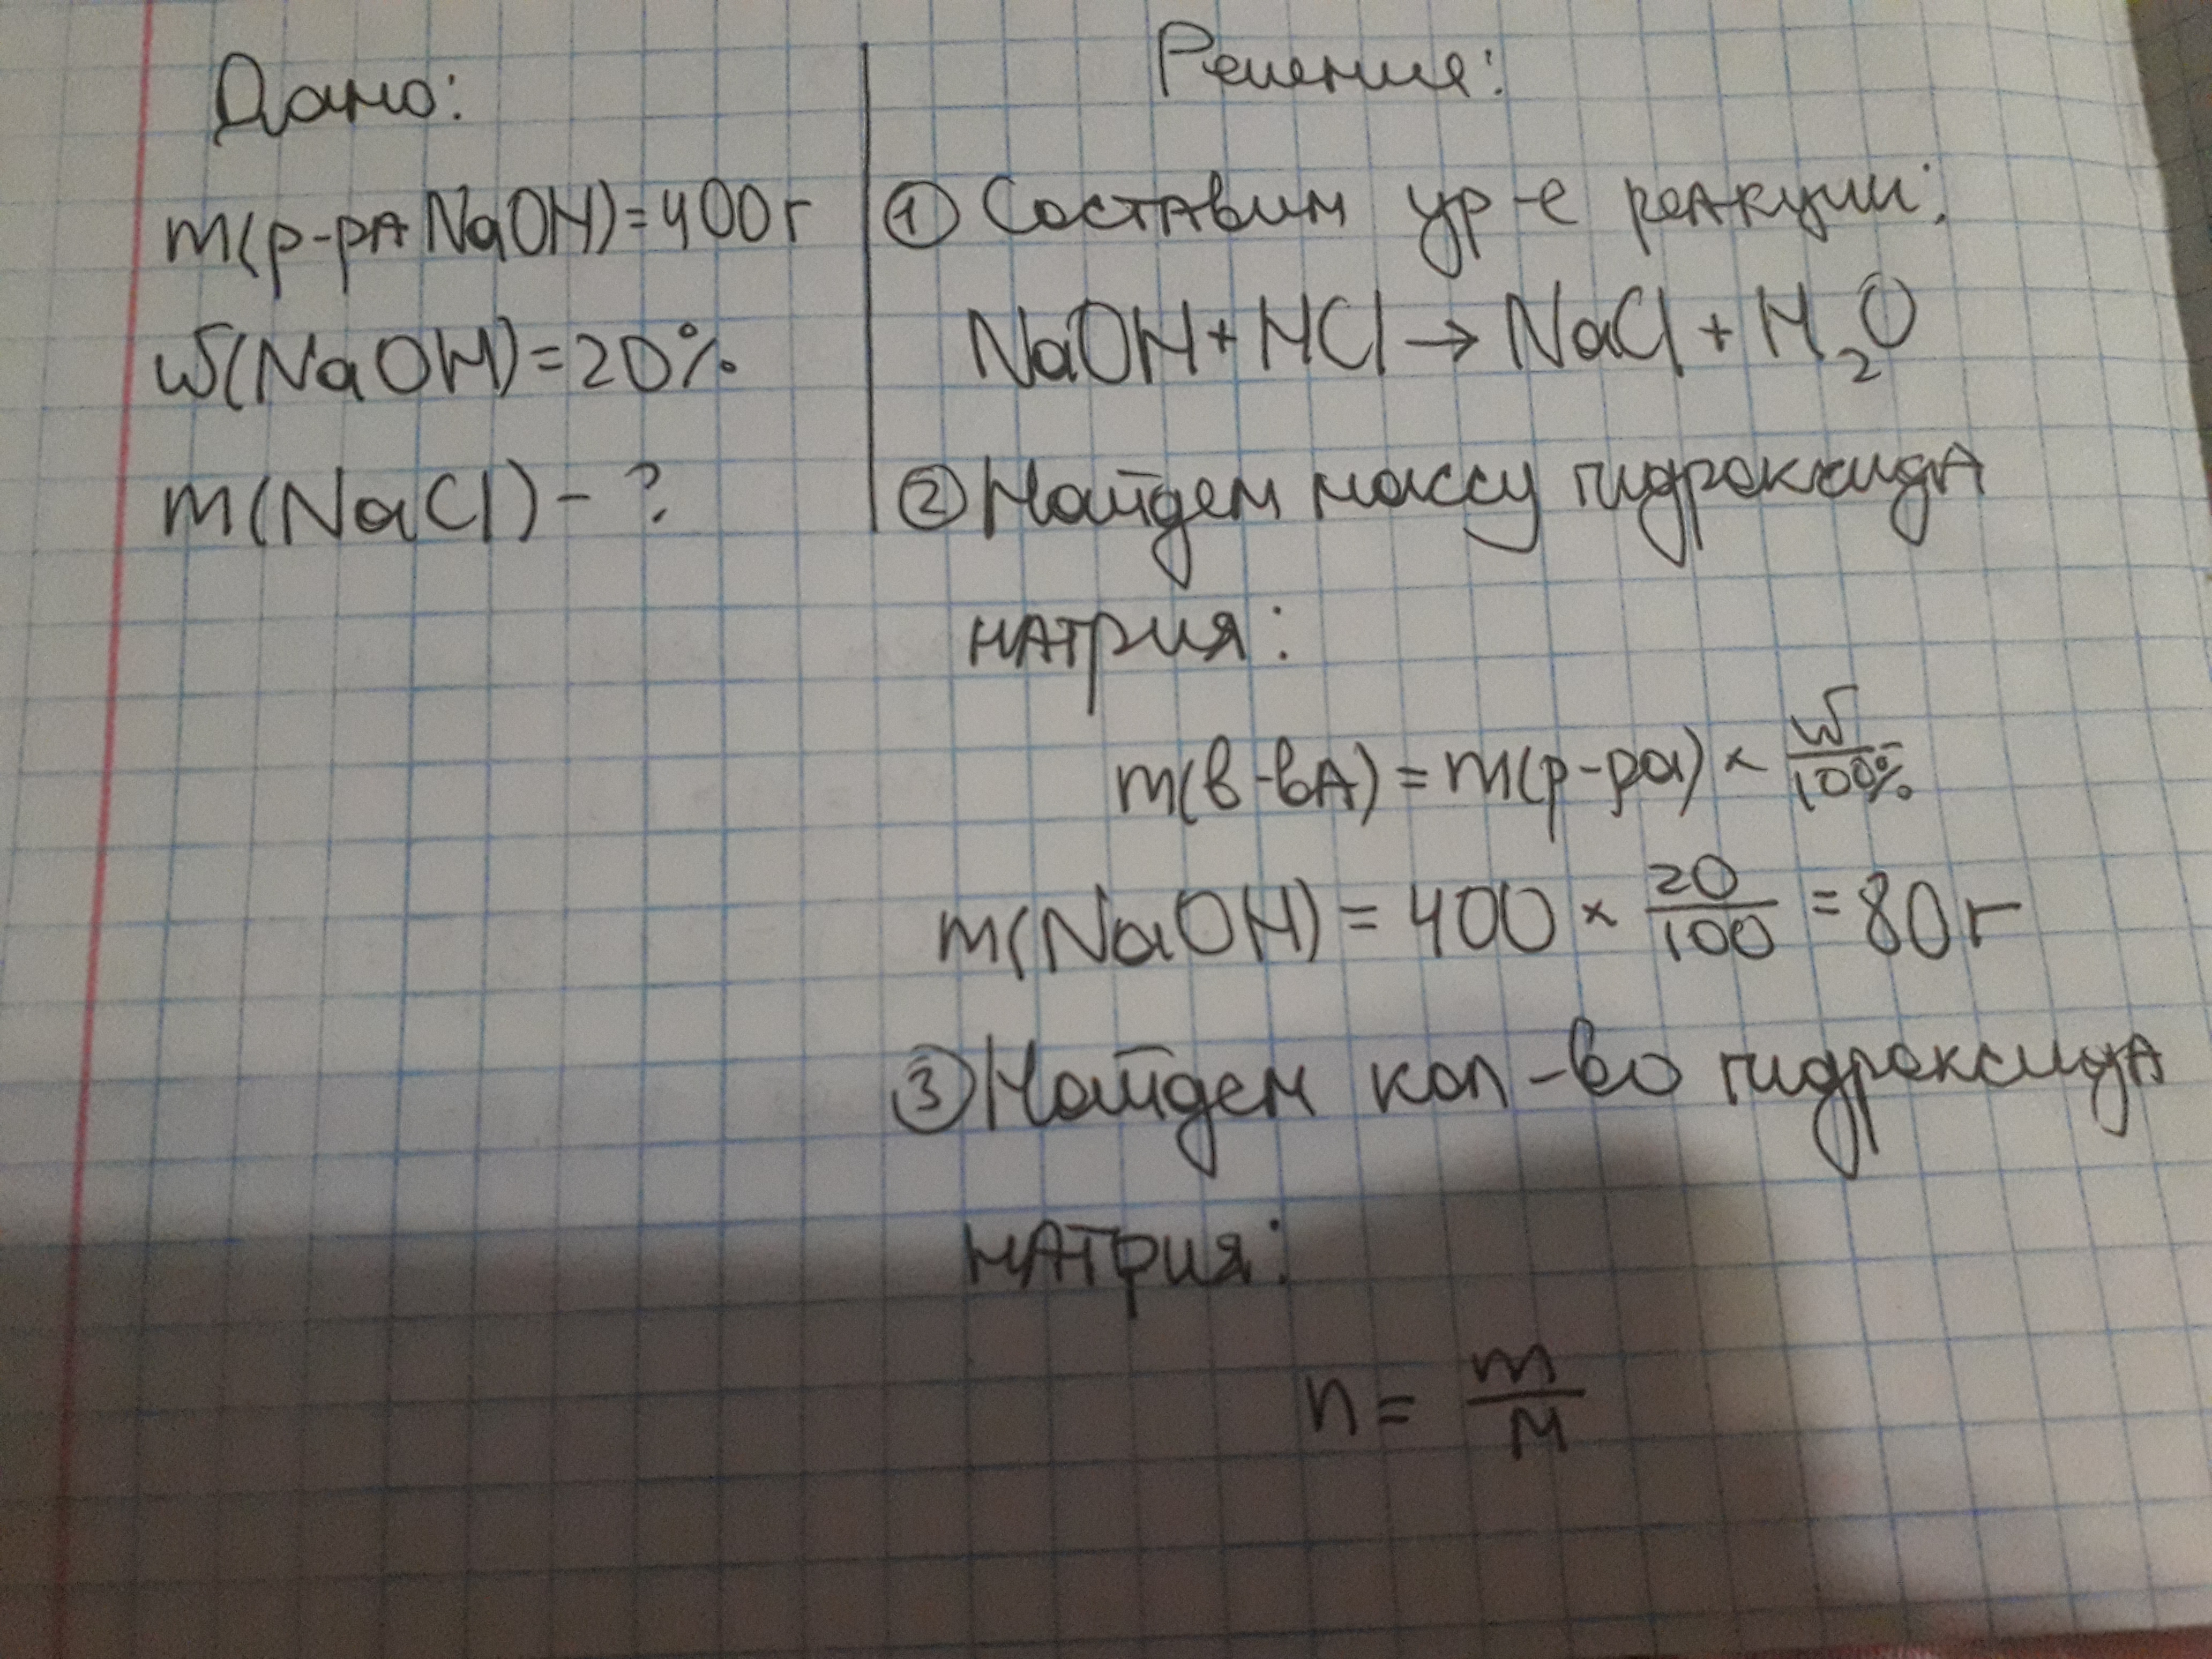 Дано:
m(р-ра NaOH)=400г
w(NaOH)=20%
m(NaCl)-?
Решения:
① Составим ур-е реакции:
NaOH+HCl→NaCl+H₂O
② Найдем массу гидроксида
натрия:
m(в-ва)=m(р-ра)×w/100%
m(NaOH)=400×20/100=80г
③ Найдем кол-во гидроксида
натрия:
n=m/M